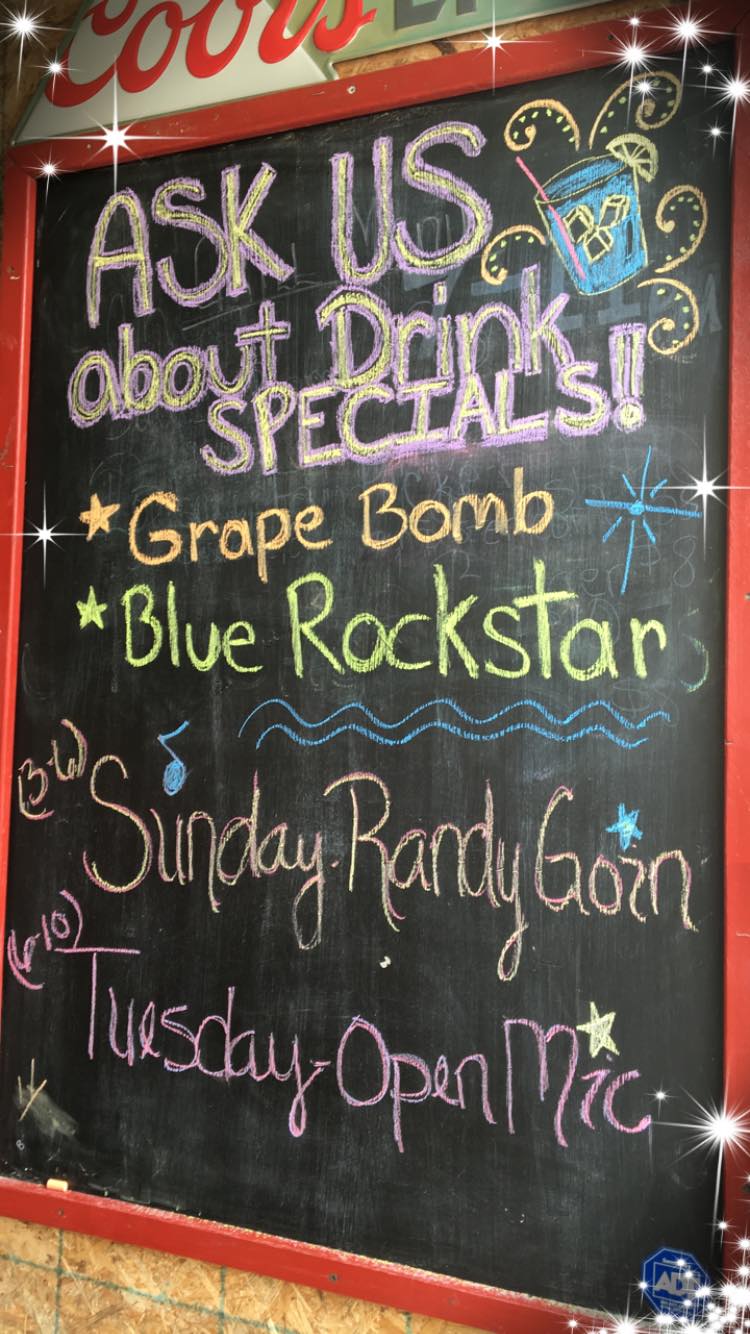 Coors
ASK US
about Drink
SPECIALS!!
Grape Bomb
Blue Rockstar
(3-6)
Sunday-Randy Goin
(6-10)
Tuesday-Open Mic